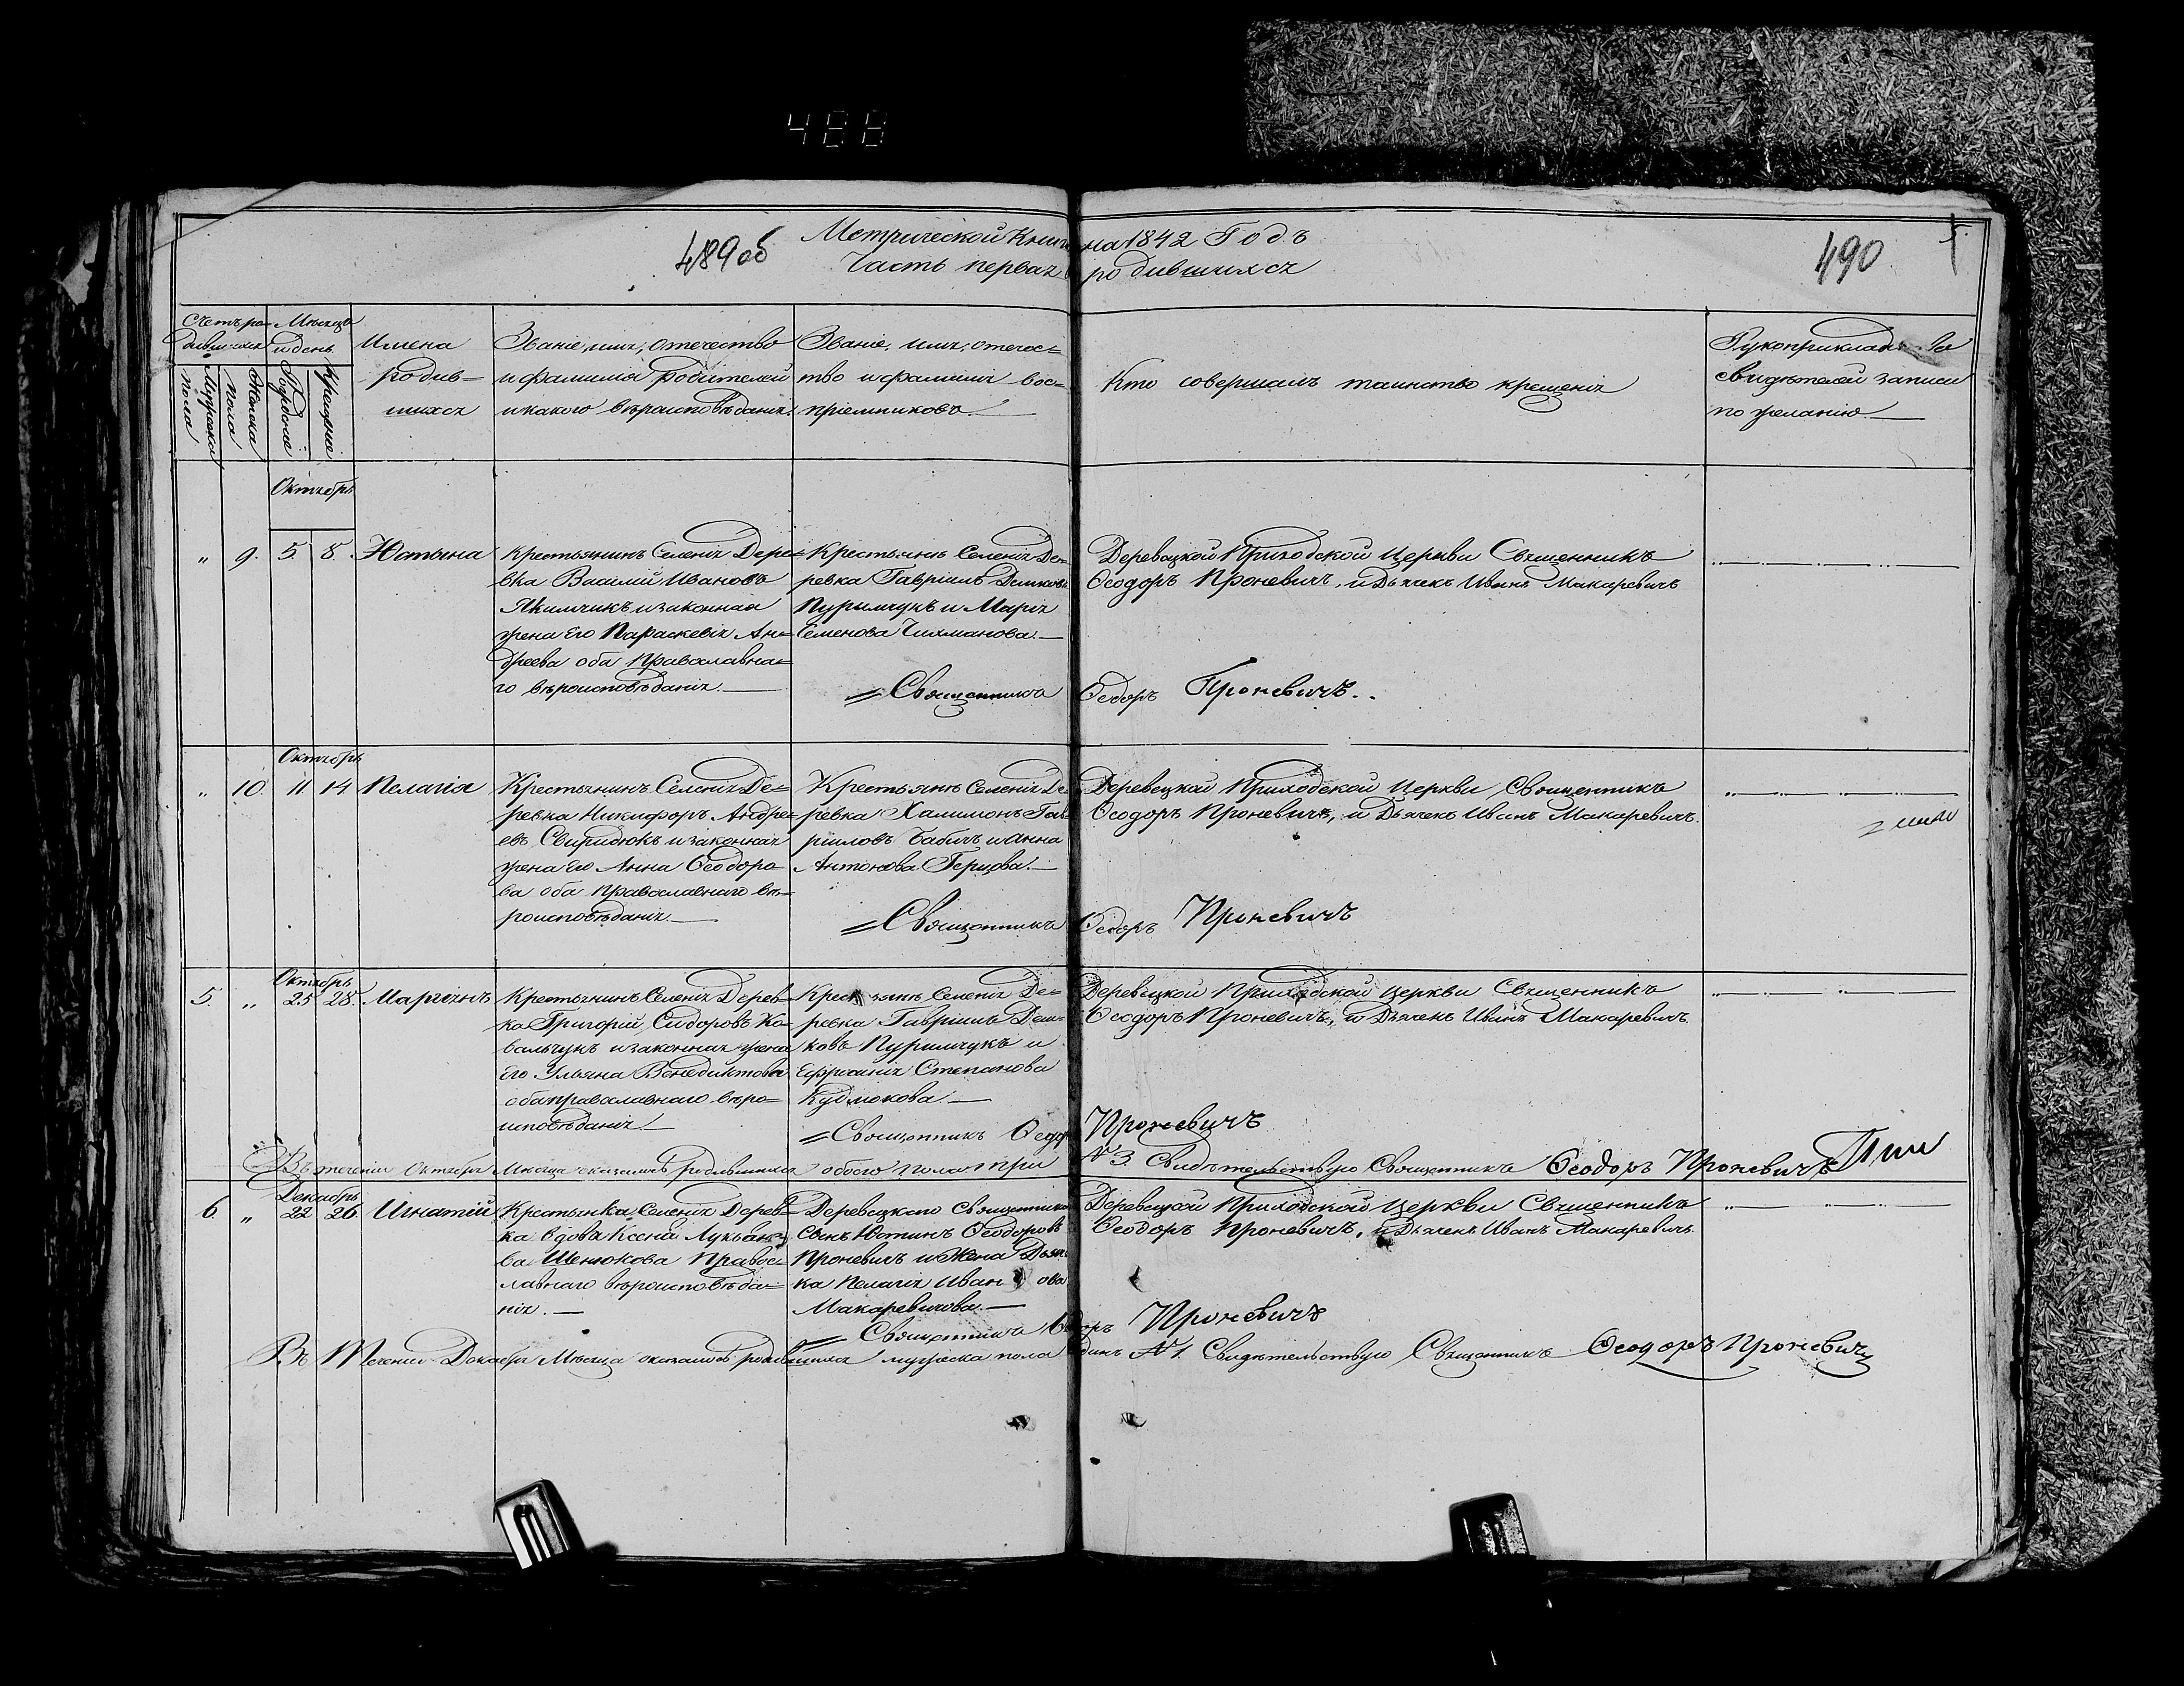 488
489об
Метрической Книги на 1842 Годъ
Часть первая о родившихся
490
5.
Счетъ ро=
дившихся
Мѣсяцъ
и день.
Мужеска
пола
Женска
пола
Рожденіе
Крещеніе
Имена
родив=
шихся
Званіе, имя, отечество
и фамилія родителей
и какого вѣроисповѣданія.
Званіе, имя, отечес=
тво и фамилія вос=
пріемниковъ.
Кто совершалъ таинство крещенія
Рукоприкладство
свидѣтелей записи
по желанію.
Октябрь
" 9. 5. 8. Юстына
Крестьянинъ Селенія Дере=
вка Василій Ивановъ
Якимчикъ и законная
жена Его Параскевія Ан=
дреева оба Православна=
го вѣроисповѣданія.
Крестьянъ Селенія Де=
ревка Гавріилъ Демковъ
Пурымчукъ и Марія
Семенова Чихманова.
Деревецкой Приходской Церкви Священникъ
Ѳеодоръ Проневичъ, и Дьячекъ Иванъ Макаревичъ
= Священникъ Ѳеодоръ Проневичъ.
Октябрь
" 10. 11. 14. Пелагія
Крестьянинъ Селенія Де=
ревка Никифоръ Андре=
евъ Свиридюкъ и законная
жена Его Анна Ѳеодоро
ва оба православнаго вѣ=
роисповѣданія.
Крестьянъ Селенія Де
ревка Халимонъ Гав
риловъ Бабичъ и Анна
Антонова Герцова.
Деревецкой Приходской Церкви Священникъ
Ѳеодоръ Проневичъ, и Дьячекъ Иванъ Макаревичъ.
= Священникъ Ѳеодоръ Проневичъ
Октябрь
5. " 25 28. Мартинъ
Крестьянинъ Селенія Дерев=
ка Григорій Сидоровъ Ко=
вальчукъ и законная жена
Его Ульяна Венедиктова
оба православнаго вѣро=
исповѣданія.
Крестьянъ Селенія Де=
ревка Гавріилъ Дем=
ковъ Пурымчукъ и
Ефросинія Степанова
Кудлюкова.
Деревецкой Приходской Церкви Священникъ
Ѳеодоръ Проневичъ, и Дьячекъ Иванъ Макаревичъ.
= Священникъ Ѳеодоръ Проневичъ
Въ теченіи Октября Мѣсяца оказалось родившихся обоего пола три № 3. Свидѣтельствую Священникъ Ѳеодоръ Проневичъ
Декабрь
6. " 22 26. Игнатій
Крестьянка Селенія Дерев=
ка вдова Ксенія Лукьано
ва Шенюкова Правос=
лавнаго вѣроисповѣда=
нія.
Деревецкаго Священника
Сынъ Юстинъ Ѳеодоровъ
Проневичъ и Жена Дьяч
ка Пелагія Иванова
Макаревичова.
Деревецкой Приходской Церкви Священникъ
Ѳеодоръ Проневичъ, и Дьячекъ Иванъ Макаревичъ.
= Священникъ Ѳеодоръ Проневичъ
Въ Теченіи Декабря Мѣсяца оказалось родившихся мужеска пола одинъ № 1. Свидѣтельствую Священникъ Ѳеодоръ Проневичъ